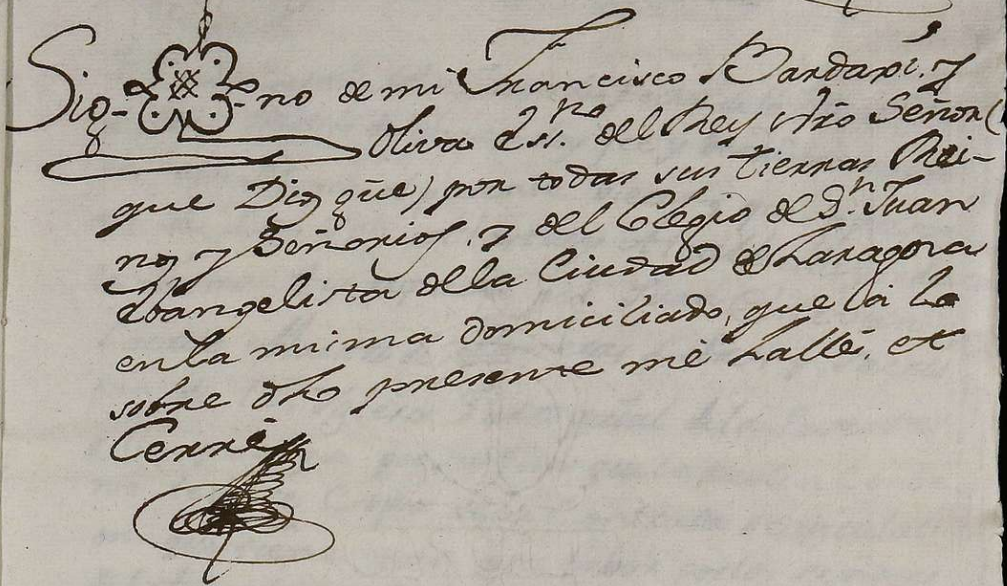 Sig-no de mi Francisco Bardaxi, y
Oliva Ess.no del Rey nr̃o Señor (
que Dios gũe) por todas sus tierras Rei-
nos y Señorios, y del Colegio de S.n Juan
Evangelista de la Ciudad de Zaragoza
en la misma domiciliado, que a lo
sobre dho presente me hallé, et
Cerré